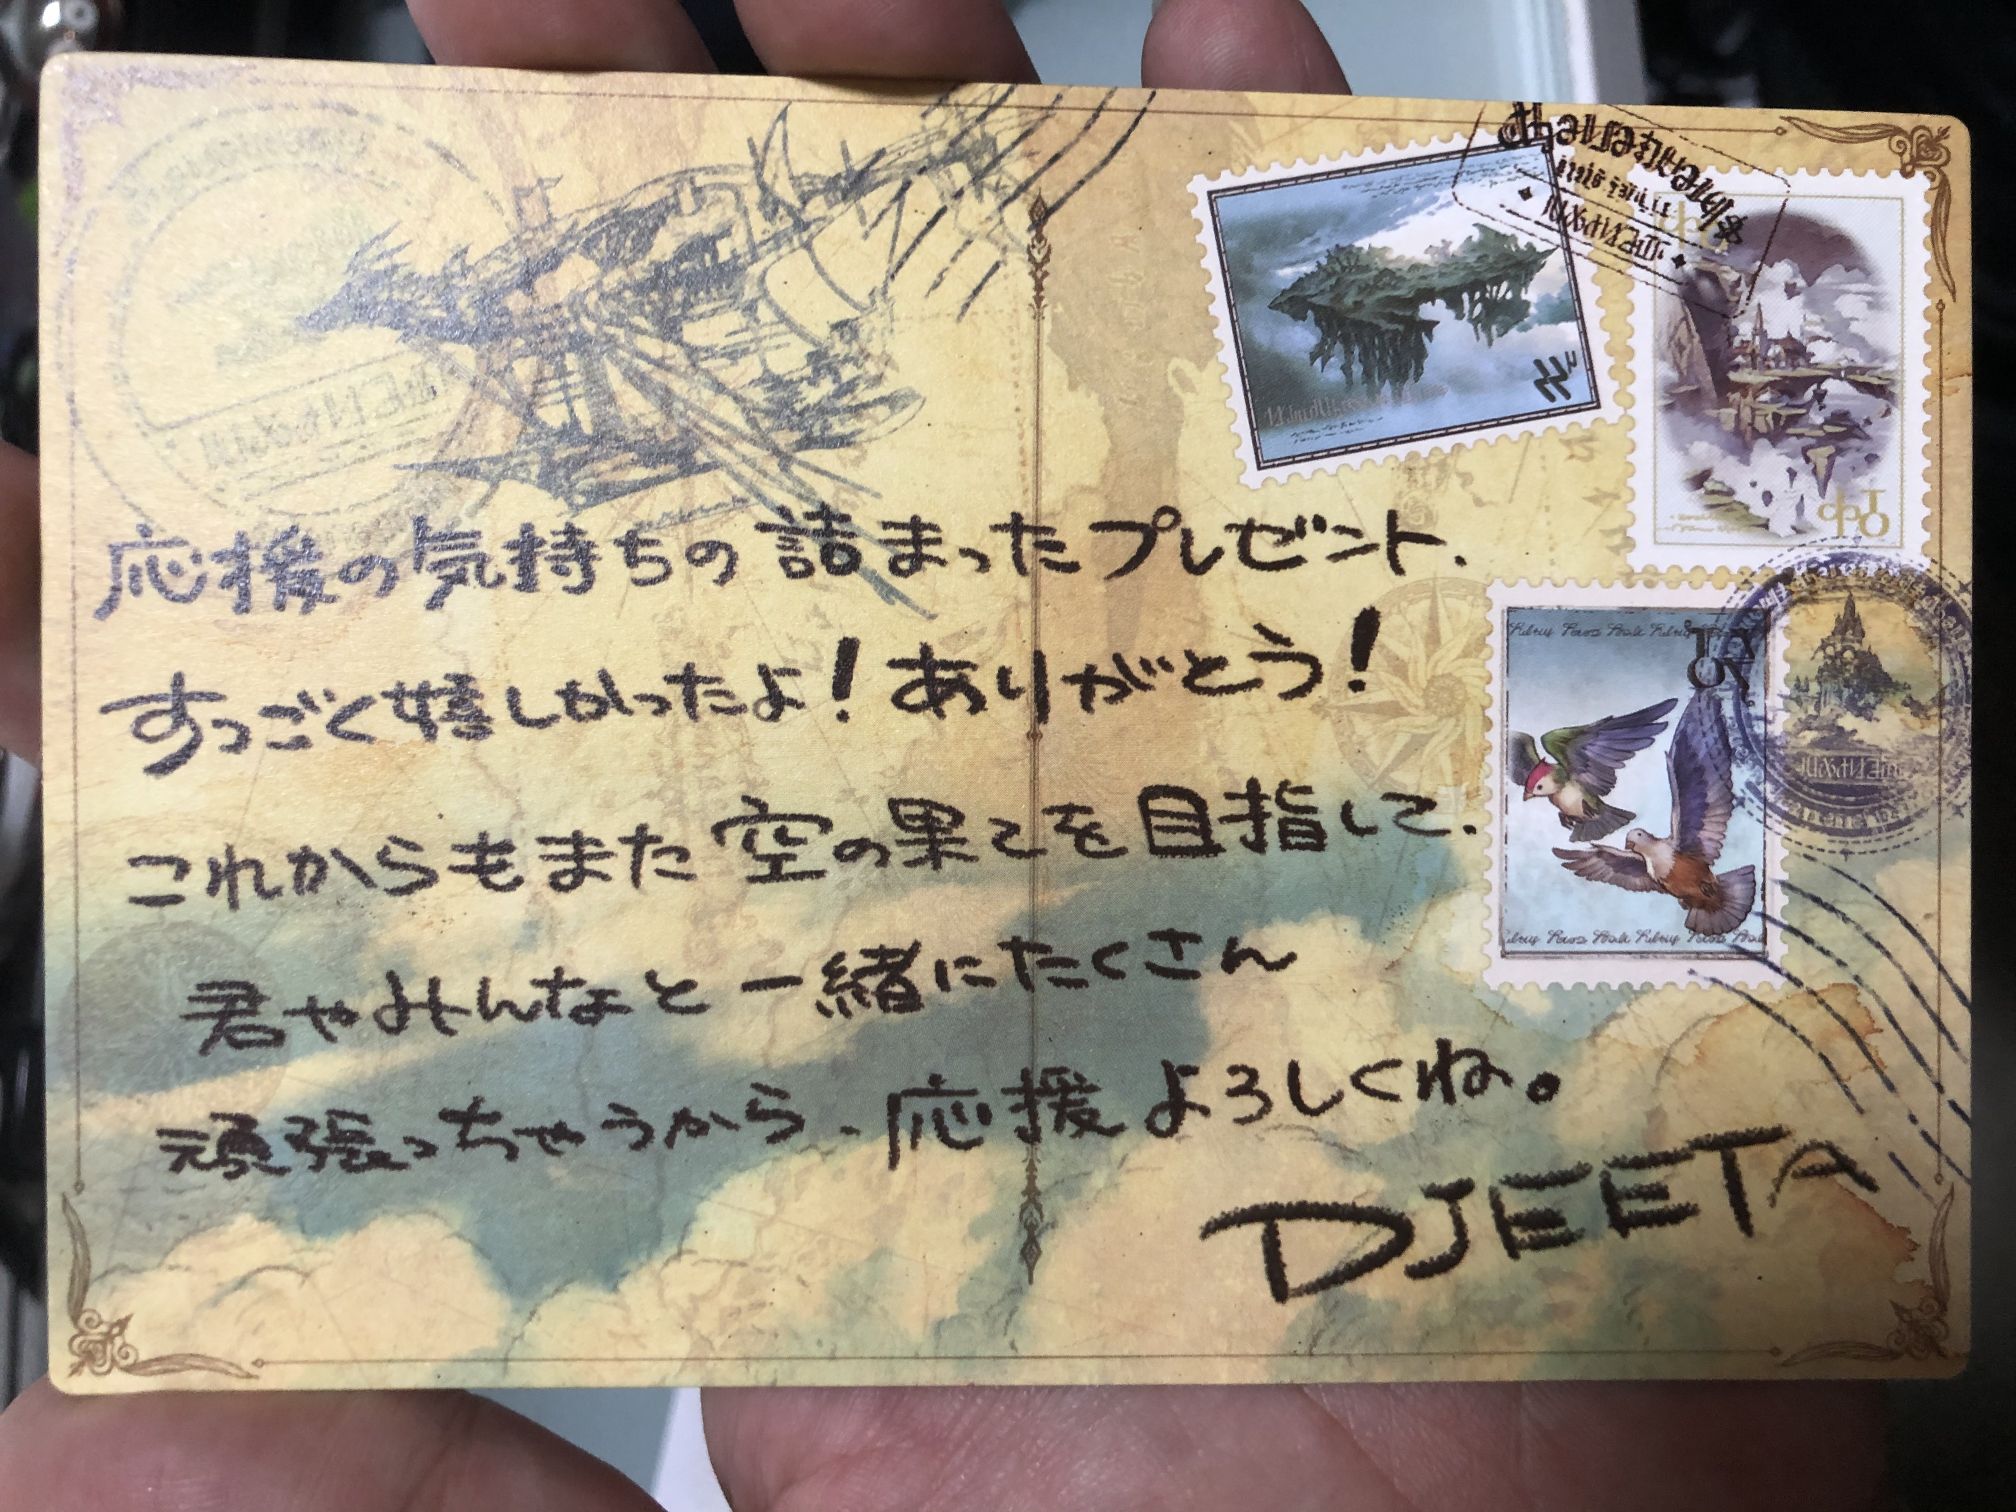 応援の気持ちの詰まったプレゼント、
すっごく嬉しかったよ！ありがとう！
これからもまた空の果てを目指して、
君やみんなと一緒にたくさん
頑張っちゃうから、応援よろしくね。
DJEETA